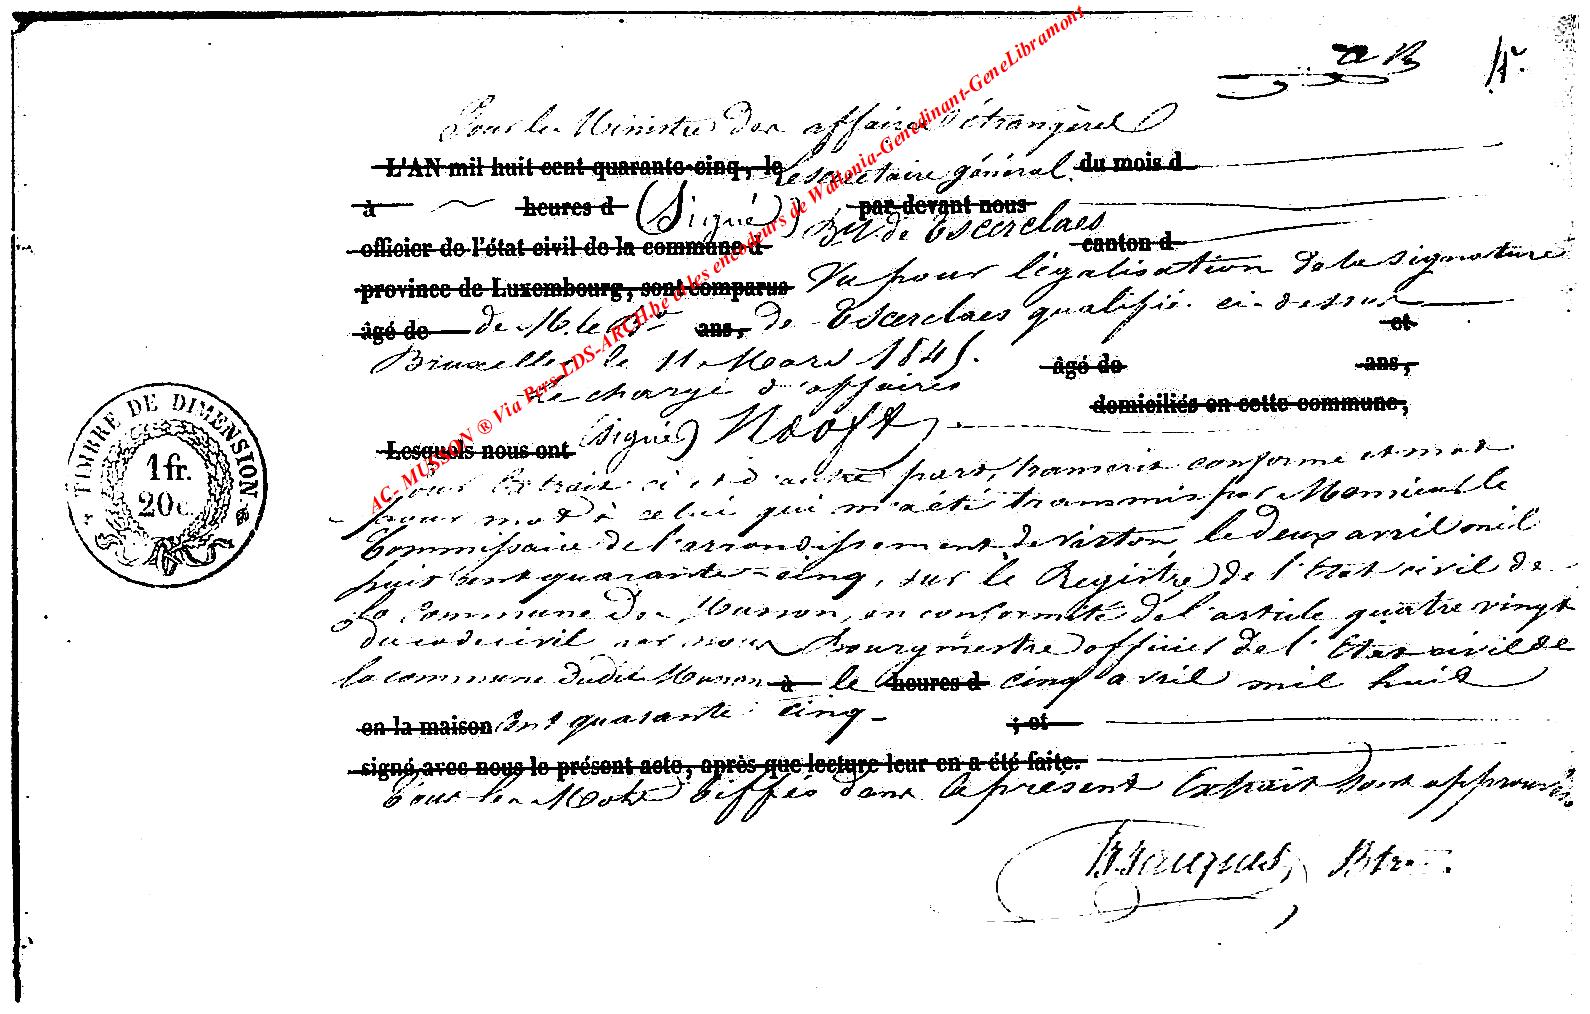 Pour le Ministre des affaires étrangères
L'AN mil huit cent quarante-cinq, le Le secrétaire général. du mois d
à heures d (Signé) par devant nous
officier de l'état civil de la commune d Bon de Tserclaes canton d
province de Luxembourg, sont comparus Vu pour légalisation de la signature
âgé de de M. le Bon ans, de Tserclaes qualifié ci-dessus et
Bruxelles le 11 Mars 1845. âgé de ans,
Le chargé d'affaires
domiciliés en cette commune,
Lesquels nous ont (signé)
pour Extrait ci et d'autre part, transcrit conforme et mot
pour mot à celui qui m'a été transmis par Monsieur le
Commissaire de l'arrondissement de Virton, le deux avril mil
huit cent quarante-cinq, sur le Registre de l'Etat civil de
la Commune de Musson, en conformité de l'article quatre vingt
du code civil par nous Bourgmestre officier de l'Etat civil de
la commune dudit Musson à le heures d cinq avril mil huit
en la maison cent quarante cinq ; et
signé avec nous le présent acte, après que lecture leur en a été faite.
Tous les Mots biffés dans le présent Extrait sont approuvés
TIMBRE DE DIMENSION
1 fr.
20c
AC- MUSSON ® Via Pers-LDS-ARCH.be et les encodeurs de Wallonia-Genedinant-GeneLibramont